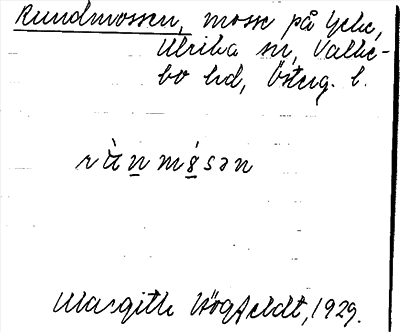 Rundmossen, mosse på Ycke,
Ulrika sn, Valke-
bo hd, Österg. l.
Margith Högfeldt, 1929.